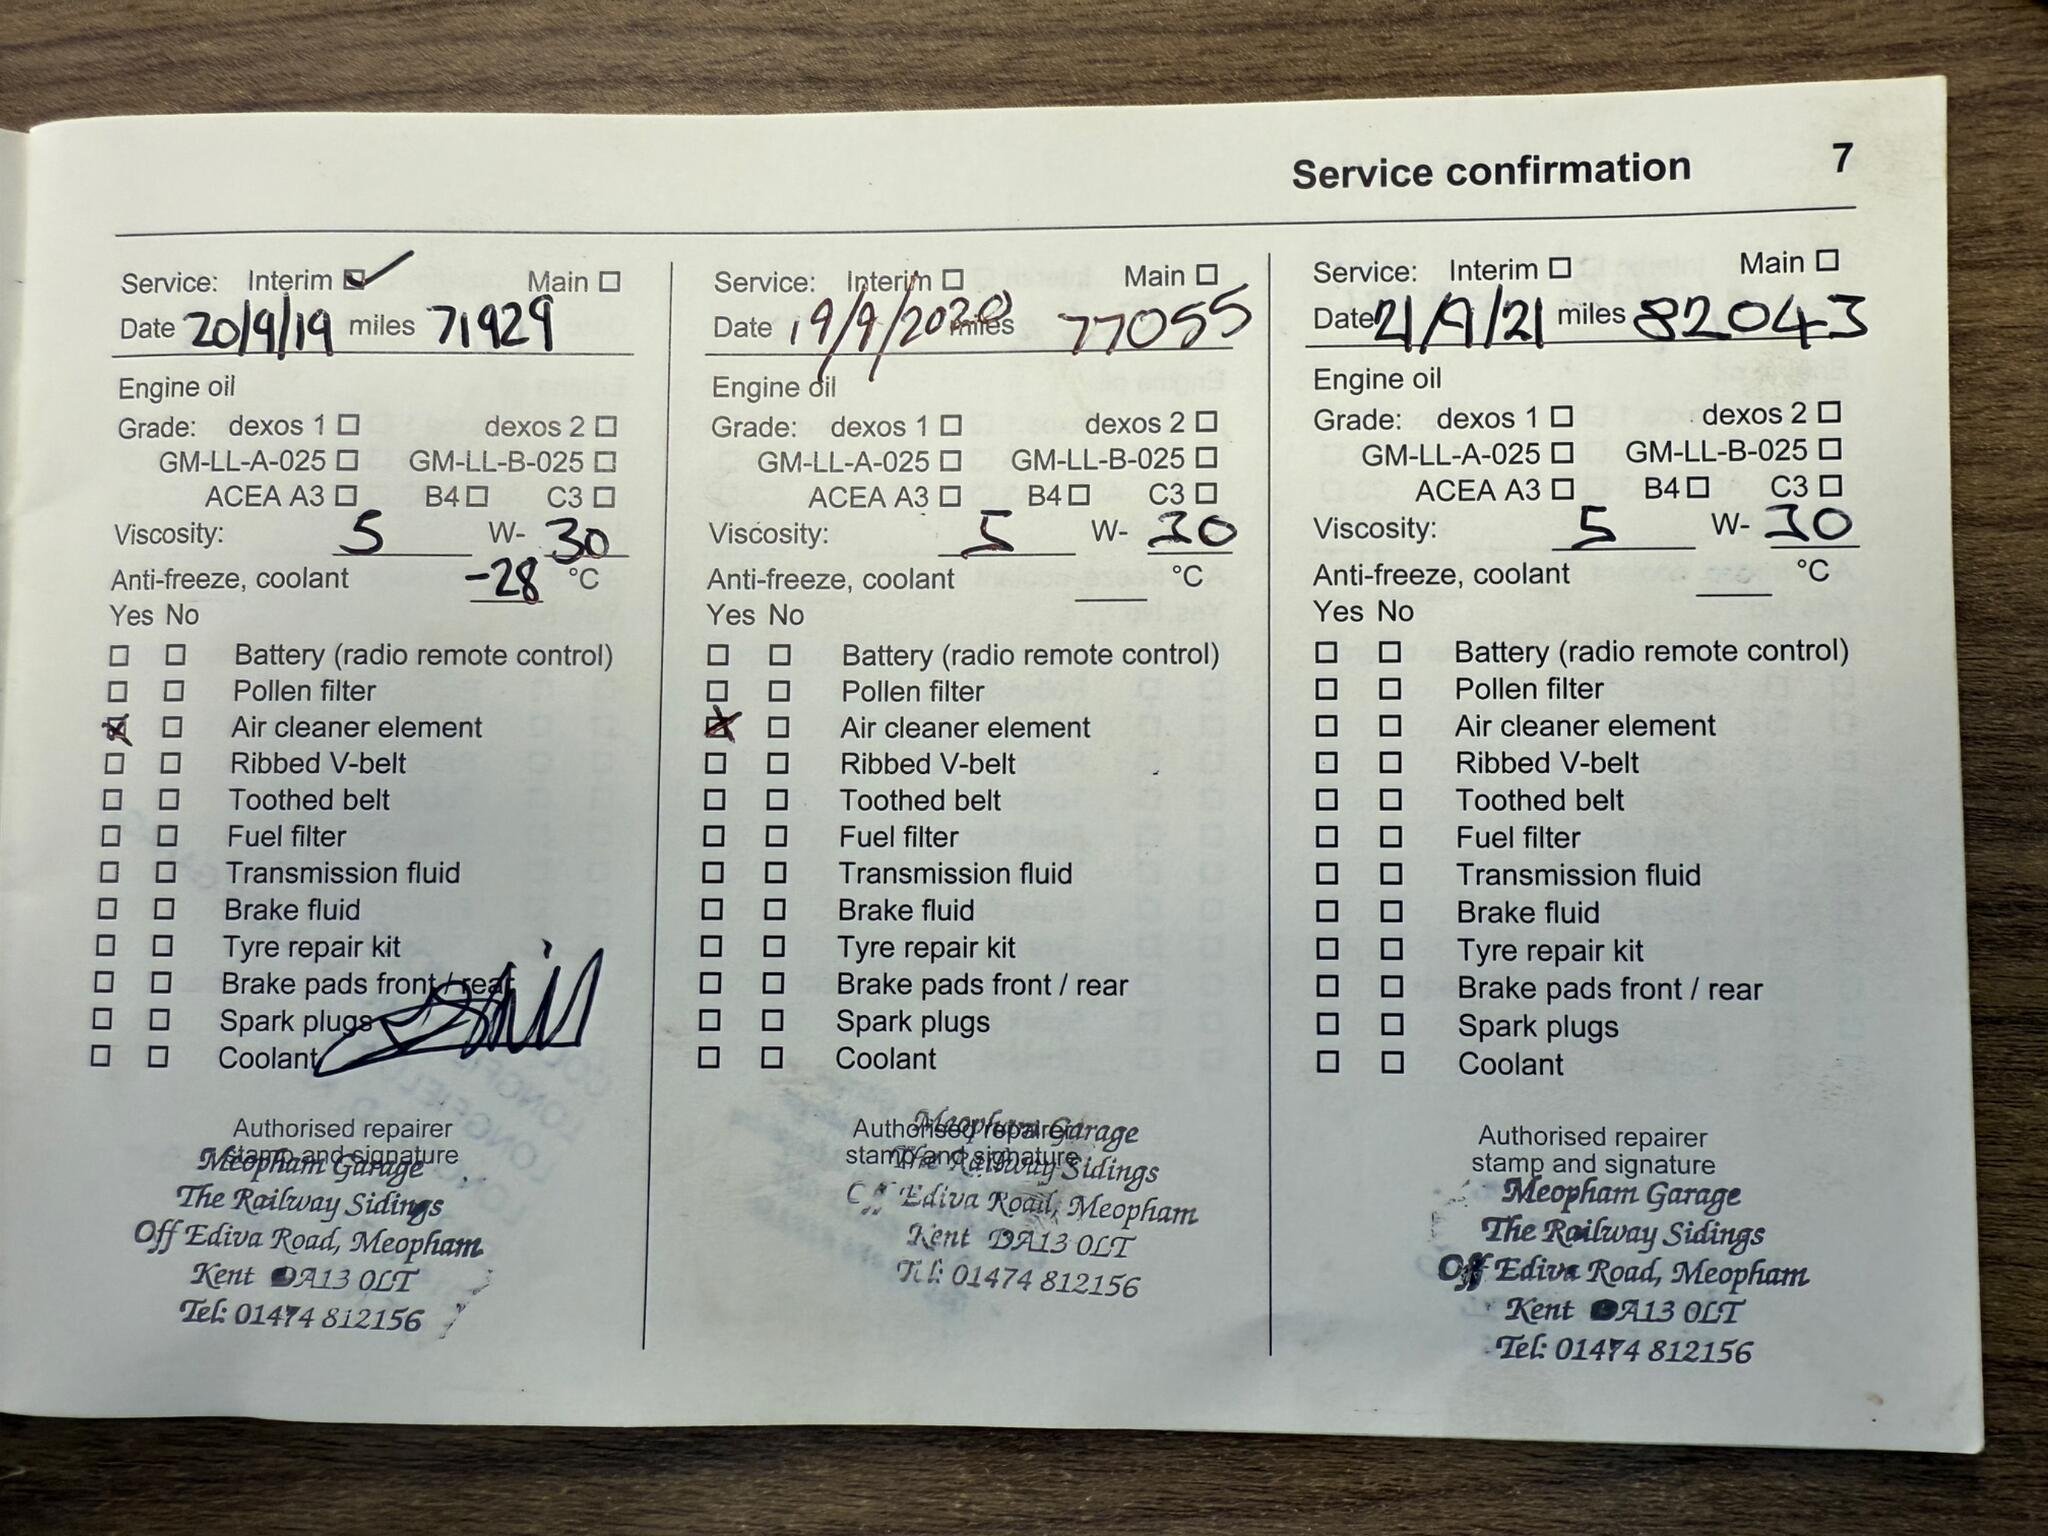 Service confirmation 7
Service: Interim Main
Date 20/9/19 miles 71929
Engine oil
Grade: dexos 1 dexos 2
GM-LL-A-025 GM-LL-B-025
ACEA A3 B4 C3
Viscosity: 5 W- 30
Anti-freeze, coolant -28 °C
Yes No
Battery (radio remote control)
Pollen filter
Air cleaner element
Ribbed V-belt
Toothed belt
Fuel filter
Transmission fluid
Brake fluid
Tyre repair kit
Brake pads front / rear
Spark plugs
Coolant
Authorised repairer
stamp and signature
Meopham Garage
The Railway Sidings
Off Ediva Road, Meopham
Kent DA13 0LT
Tel: 01474 812156
Service: Interim Main
Date 19/9/2020 miles 77055
Engine oil
Grade: dexos 1 dexos 2
GM-LL-A-025 GM-LL-B-025
ACEA A3 B4 C3
Viscosity: 5 W- 30
Anti-freeze, coolant °C
Yes No
Battery (radio remote control)
Pollen filter
Air cleaner element
Ribbed V-belt
Toothed belt
Fuel filter
Transmission fluid
Brake fluid
Tyre repair kit
Brake pads front / rear
Spark plugs
Coolant
Authorised repairer
stamp and signature
Meopham Garage
The Railway Sidings
Off Ediva Road, Meopham
Kent DA13 0LT
Tel: 01474 812156
Service: Interim Main
Date 21/9/21 miles 82043
Engine oil
Grade: dexos 1 dexos 2
GM-LL-A-025 GM-LL-B-025
ACEA A3 B4 C3
Viscosity: 5 W- 30
Anti-freeze, coolant °C
Yes No
Battery (radio remote control)
Pollen filter
Air cleaner element
Ribbed V-belt
Toothed belt
Fuel filter
Transmission fluid
Brake fluid
Tyre repair kit
Brake pads front / rear
Spark plugs
Coolant
Authorised repairer
stamp and signature
Meopham Garage
The Railway Sidings
Off Ediva Road, Meopham
Kent DA13 0LT
Tel: 01474 812156